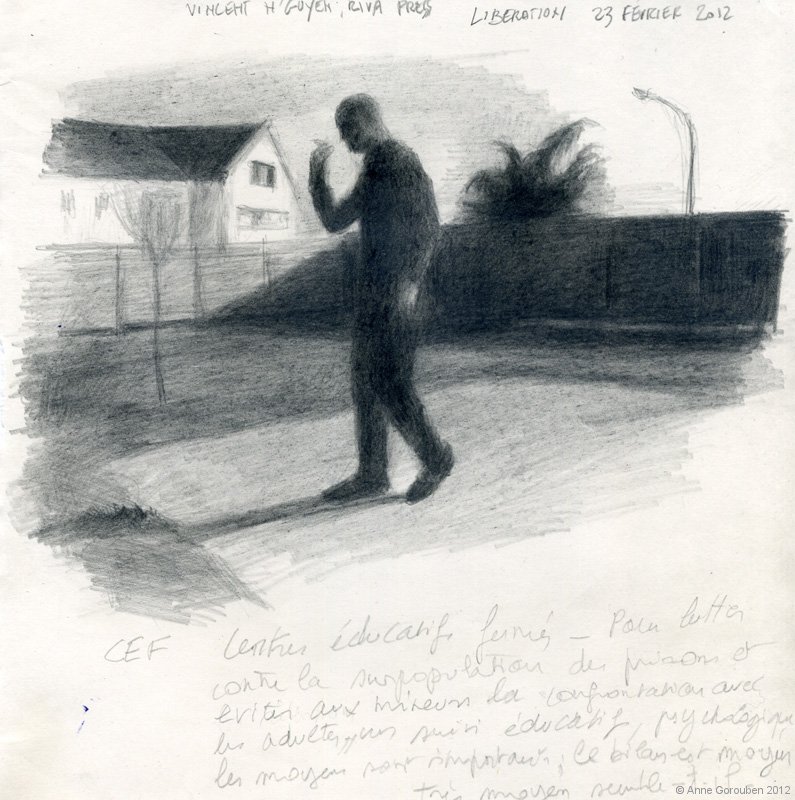 VINCENT N'GUYEN, RIVA PRESS LIBERATION 23 FEVRIER 2012
CEF Centres éducatifs fermés – Pour lutter
contre la surpopulation des prisons et
eviter aux mineurs la confrontation avec
les adultes, un suivi éducatif, psychologique
les moyens sont importants, le bilan est moyen
très moyen semble-t-il
© Anne Gorouben 2012